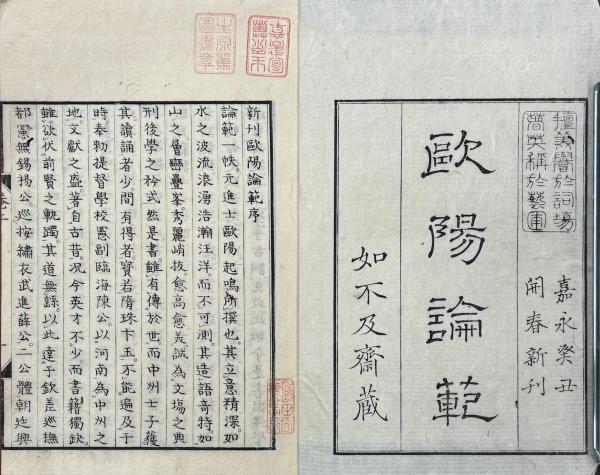 擅美譽於詞場
蓄英稱於藝圃
嘉永癸丑
開春新刊
歐陽論範
如不及齋藏
新刊歐陽論範序
論範一帙元進士歐陽起鳴所撰也其立意精深如
水之波流浪湧浩瀚汪洋而不可測其造語奇特如
山之層巒疊峯秀麗峭拔愈高愈美誠為文場之典
刑後學之矜式然是書雖有傳於世而中州士子獲
其讀誦者少間有得者寶若隋珠卞玉不能遍及于
時奉勑提督學校憲副臨海陳公以河南為中州之
地文獻之盛著自古昔况今英才不少而書籍獨缺
雖欲伏前賢之軌躅其道無繇以此達于欽差巡撫
都憲無錫揚公巡按繡衣武進薛公二公體朝廷興